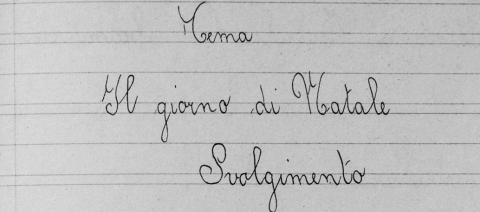 Tema
Il giorno di Natale
Svolgimento